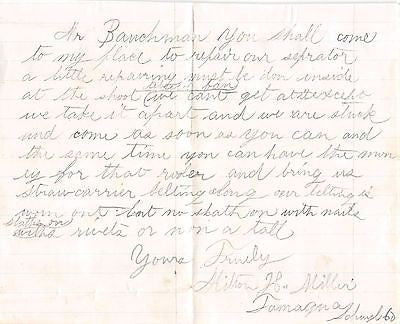 Mr Bauchman You shall come
to my place to repair our seprator
a little repairing must be don inside
at the shoot we cant get at it excebt
we take it apart and we are stuck
und come as soon as you can and
the same time you can have the mun
is for that and bring us
straw carrier belting along our belting is
worn out but no slath on with nails
slaths on
with rivets or non a tall
Yours Truely
Milton H. Miller
Tamaqua
Schuyl Co